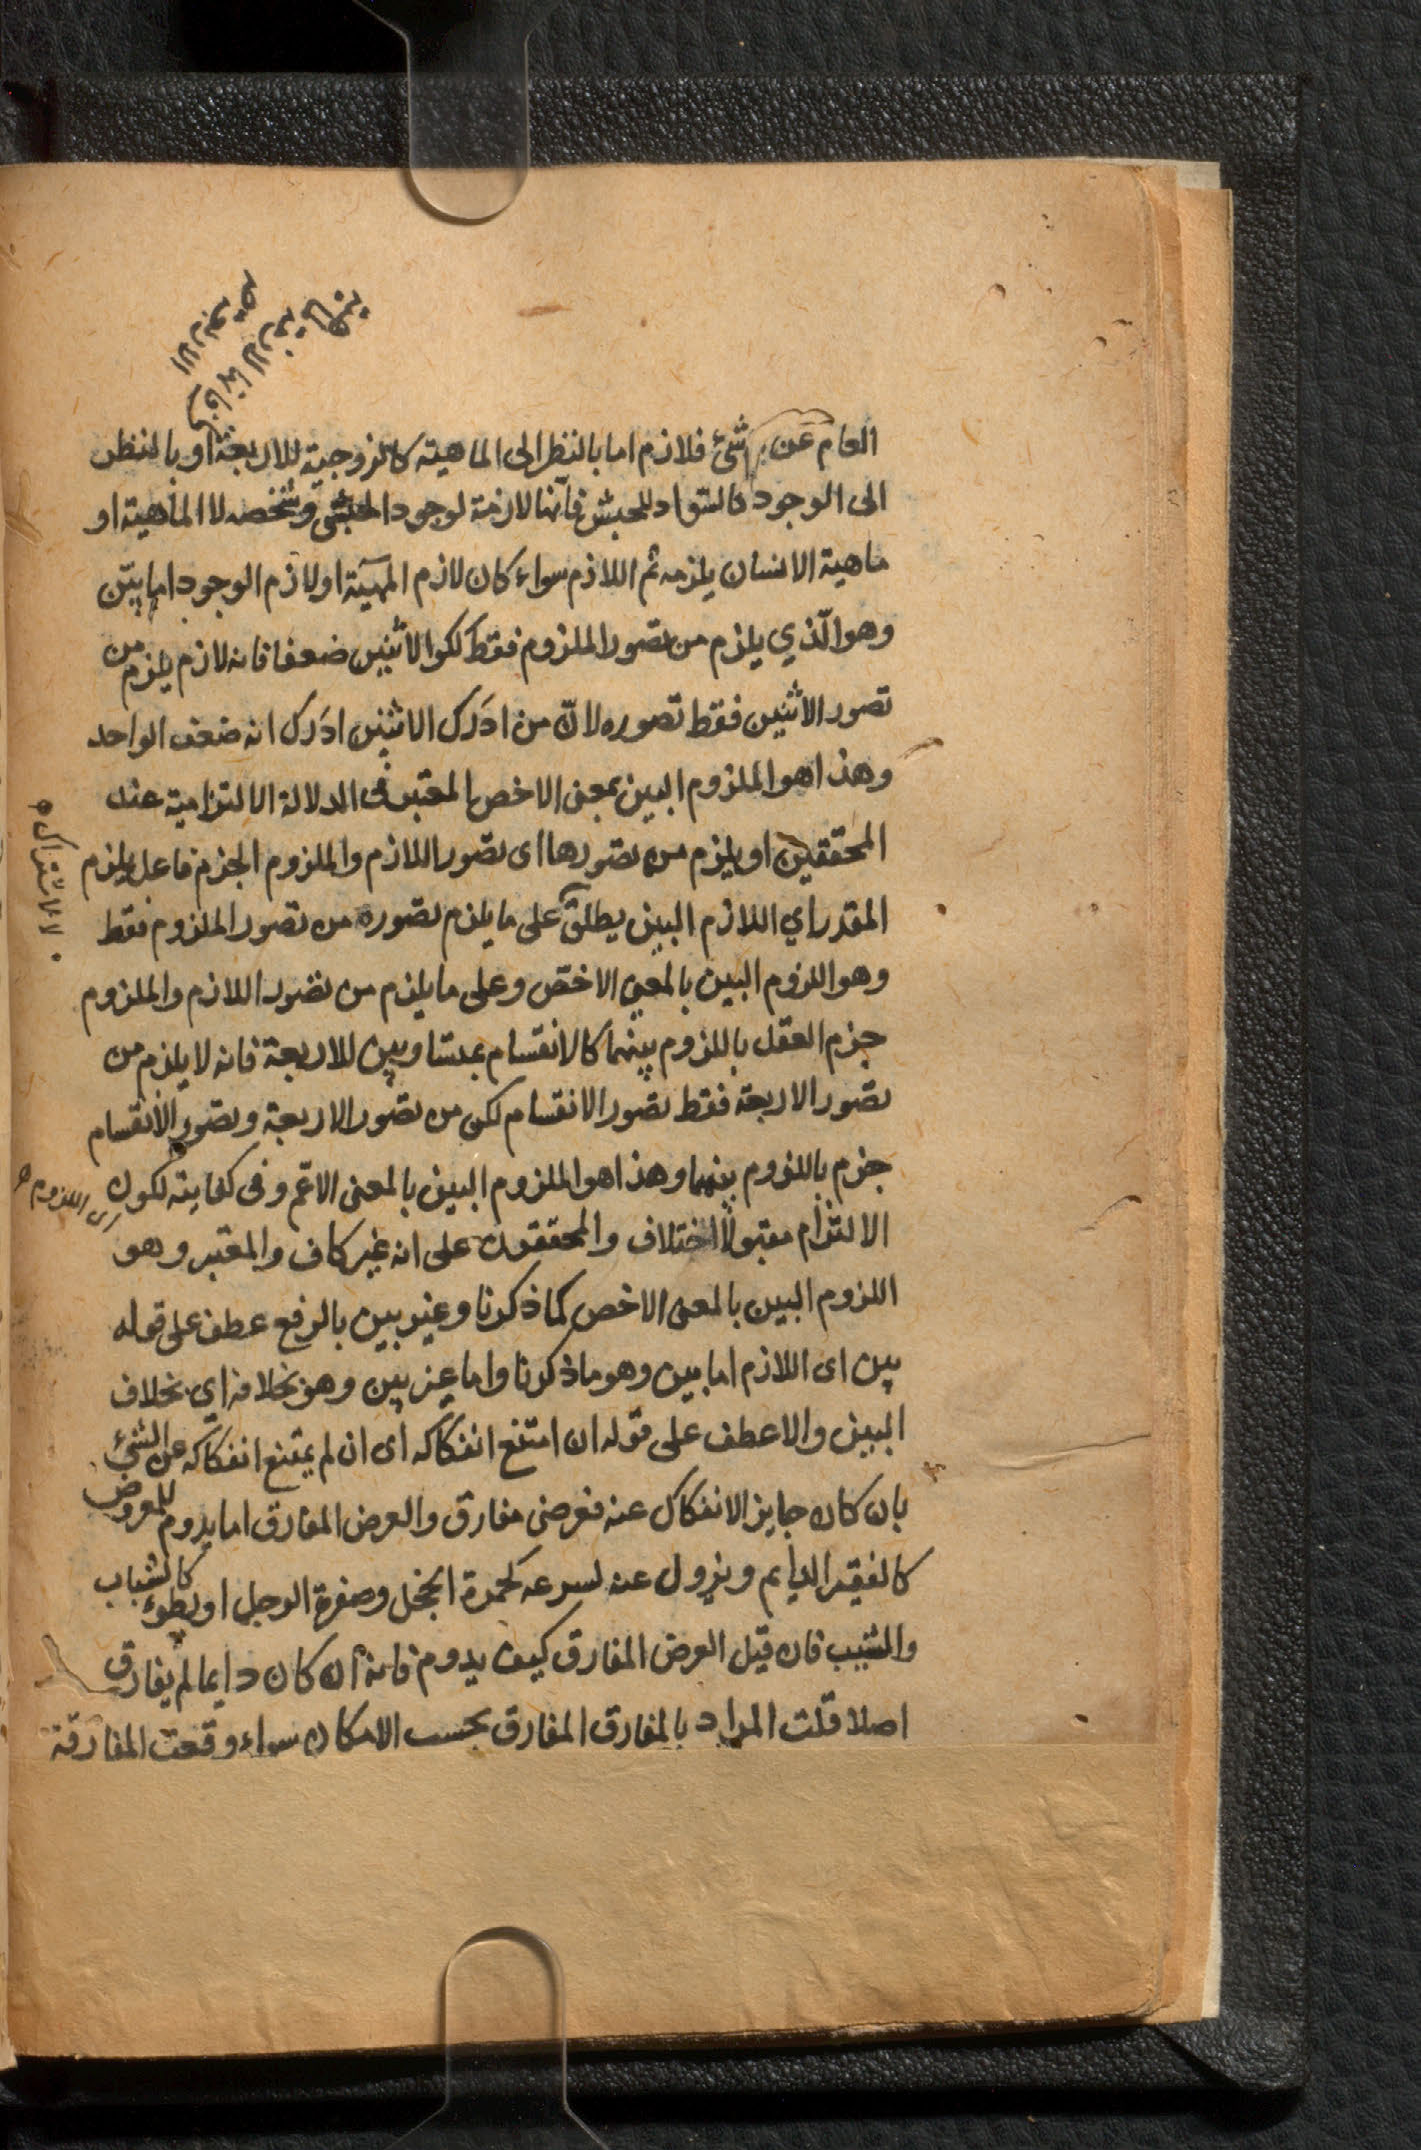 العام عن الشئ فلازم اما بالنظر الى الماهية كالزوجية للاربعة او بالنظر
الى الوجود كالسواد للحبش فانها لازمة لوجود الحبشى وشخصه لا الماهية او
ماهية الانسان يلزمه ثم اللازم سواء كان لازم المهية او لازم الوجود اما بيّن
وهو الّذي يلزم من تصور الملزوم فقط ككو الاثنين ضعفا فانه لازم يلزم من
تصور الاثنين فقط تصوره لانّ من ادرك الاثنين ادرك انه ضعف الواحد
وهذا هو الملزوم البين بمعنى الاخص المعتبر فى الدلالة الالتزامية عند
المحققين او يلزم من تصورها اى تصور اللازم والملزوم الجزم فاعل يلزم
المقدر اي اللازم البين يطلق على ما يلزم تصوره من تصور الملزوم فقط
وهو اللزوم البين بالمعنى الاخصّ وعلى ما يلزم من تصور اللازم والملزوم
جزم العقل باللزوم بينهما كالانقسام بمتساويين للاربعة فانه لا يلزم من
تصور الاربعة فقط تصور الانقسام لكن من تصور الاربعة وتصور الانقسام
جزم باللزوم بينهما وهذا هو الملزوم البين بالمعنى الاعّم وفى كفايته لكون
اى اللزوم
الالتزام مقبولا اختلاف والمحققون على انه غير كاف والمعتبر وهو
اللزوم البين بالمعنى الاخص كما ذكرنا وغير بين بالرفع عطف على قوله
بين اى اللازم اما بين وهو ما ذكرنا واما غير بين وهو بخلافه اي بخلاف
البين والا عطف على قوله ان امتنع انفكاكه اى ان لم يمتنع انفكاكه عن الشئ
بان كان جايز الانفكاك عنه فعرضى مفارق والعرض المفارق اما يدوم للمعروض
كالفقير الدايم ويزول عنه لسرعه كحمرة الخجل وصفرة الوجل او بطوء كالشباب
والشيب فان قيل العرض المفارق كيف يدوم فانه ان كان دايما لم يفارق
اصلا قلت المراد بالمفارق المفارق بحسب الامكان سواء وقعت المفارقة